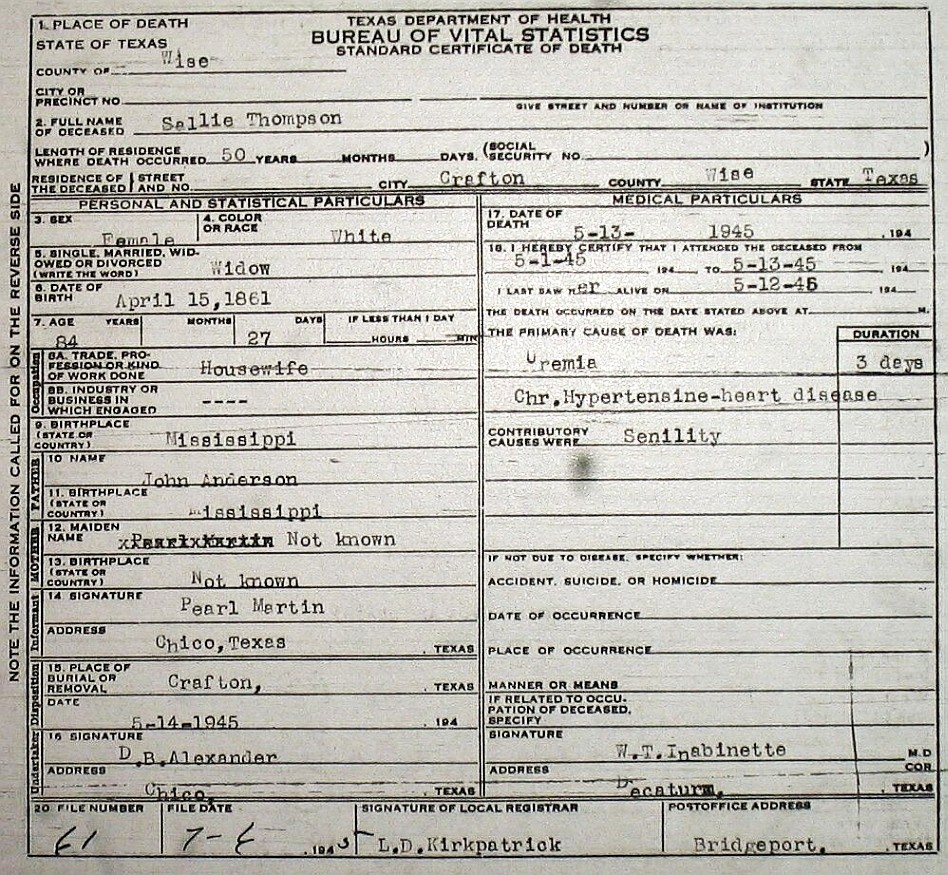 TEXAS DEPARTMENT OF HEALTH
BUREAU OF VITAL STATISTICS
STANDARD CERTIFICATE OF DEATH
1. PLACE OF DEATH
STATE OF TEXAS
COUNTY OF Wise
CITY OR
PRECINCT NO.
GIVE STREET AND NUMBER OR NAME OF INSTITUTION
2. FULL NAME
OF DECEASED Sallie Thompson
LENGTH OF RESIDENCE
WHERE DEATH OCCURRED 50 YEARS MONTHS DAYS. (SOCIAL
SECURITY NO. )
RESIDENCE OF STREET
THE DECEASED AND NO. CITY Crafton COUNTY Wise STATE Texas
NOTE THE INFORMATION CALLED FOR ON THE REVERSE SIDE
PERSONAL AND STATISTICAL PARTICULARS
3. SEX
Female
4. COLOR
OR RACE White
5. SINGLE, MARRIED, WID-
OWED OR DIVORCED
(WRITE THE WORD) Widow
6. DATE OF
BIRTH April 15,1861
7. AGE YEARS MONTHS DAYS IF LESS THAN 1 DAY
84 27 HOURS MIN
Occupation
8A. TRADE, PRO-
FESSION OR KIND
OF WORK DONE Housewife
8B. INDUSTRY OR
BUSINESS IN
WHICH ENGAGED ----
9. BIRTHPLACE
(STATE OR
COUNTRY) Mississippi
FATHER
10 NAME
John Anderson
11. BIRTHPLACE
(STATE OR
COUNTRY) Mississippi
MOTHER
12. MAIDEN
NAME Not known
13. BIRTHPLACE
(STATE OR
COUNTRY) Not known
Informant
14 SIGNATURE
Pearl Martin
ADDRESS
Chico,Texas , TEXAS
Disposition
15. PLACE OF
BURIAL OR
REMOVAL Crafton, , TEXAS
DATE
5-14-1945 , 194
Undertaker
16 SIGNATURE
D.B.Alexander
ADDRESS
Chico, , TEXAS
MEDICAL PARTICULARS
17. DATE OF
DEATH 5-13- 1945 , 194
18. I HEREBY CERTIFY THAT I ATTENDED THE DECEASED FROM
5-1-45 194 TO 5-13-45 , 194
I LAST SAW Her ALIVE ON 5-12-45 , 194
THE DEATH OCCURRED ON THE DATE STATED ABOVE AT M.
THE PRIMARY CAUSE OF DEATH WAS: DURATION
Uremia 3 days
Chr.Hypertensine-heart disease
CONTRIBUTORY
CAUSES WERE Senility
IF NOT DUE TO DISEASE, SPECIFY WHETHER:
ACCIDENT, SUICIDE, OR HOMICIDE
DATE OF OCCURRENCE
PLACE OF OCCURRENCE
MANNER OR MEANS
IF RELATED TO OCCU-
PATION OF DECEASED,
SPECIFY
SIGNATURE
W.T.Inabinette M.D
ADDRESS COR.
Decaturm, , TEXAS
20 FILE NUMBER
61
FILE DATE
7-6 , 1945
SIGNATURE OF LOCAL REGISTRAR
L.D.Kirkpatrick
POSTOFFICE ADDRESS
Bridgeport, , TEXAS